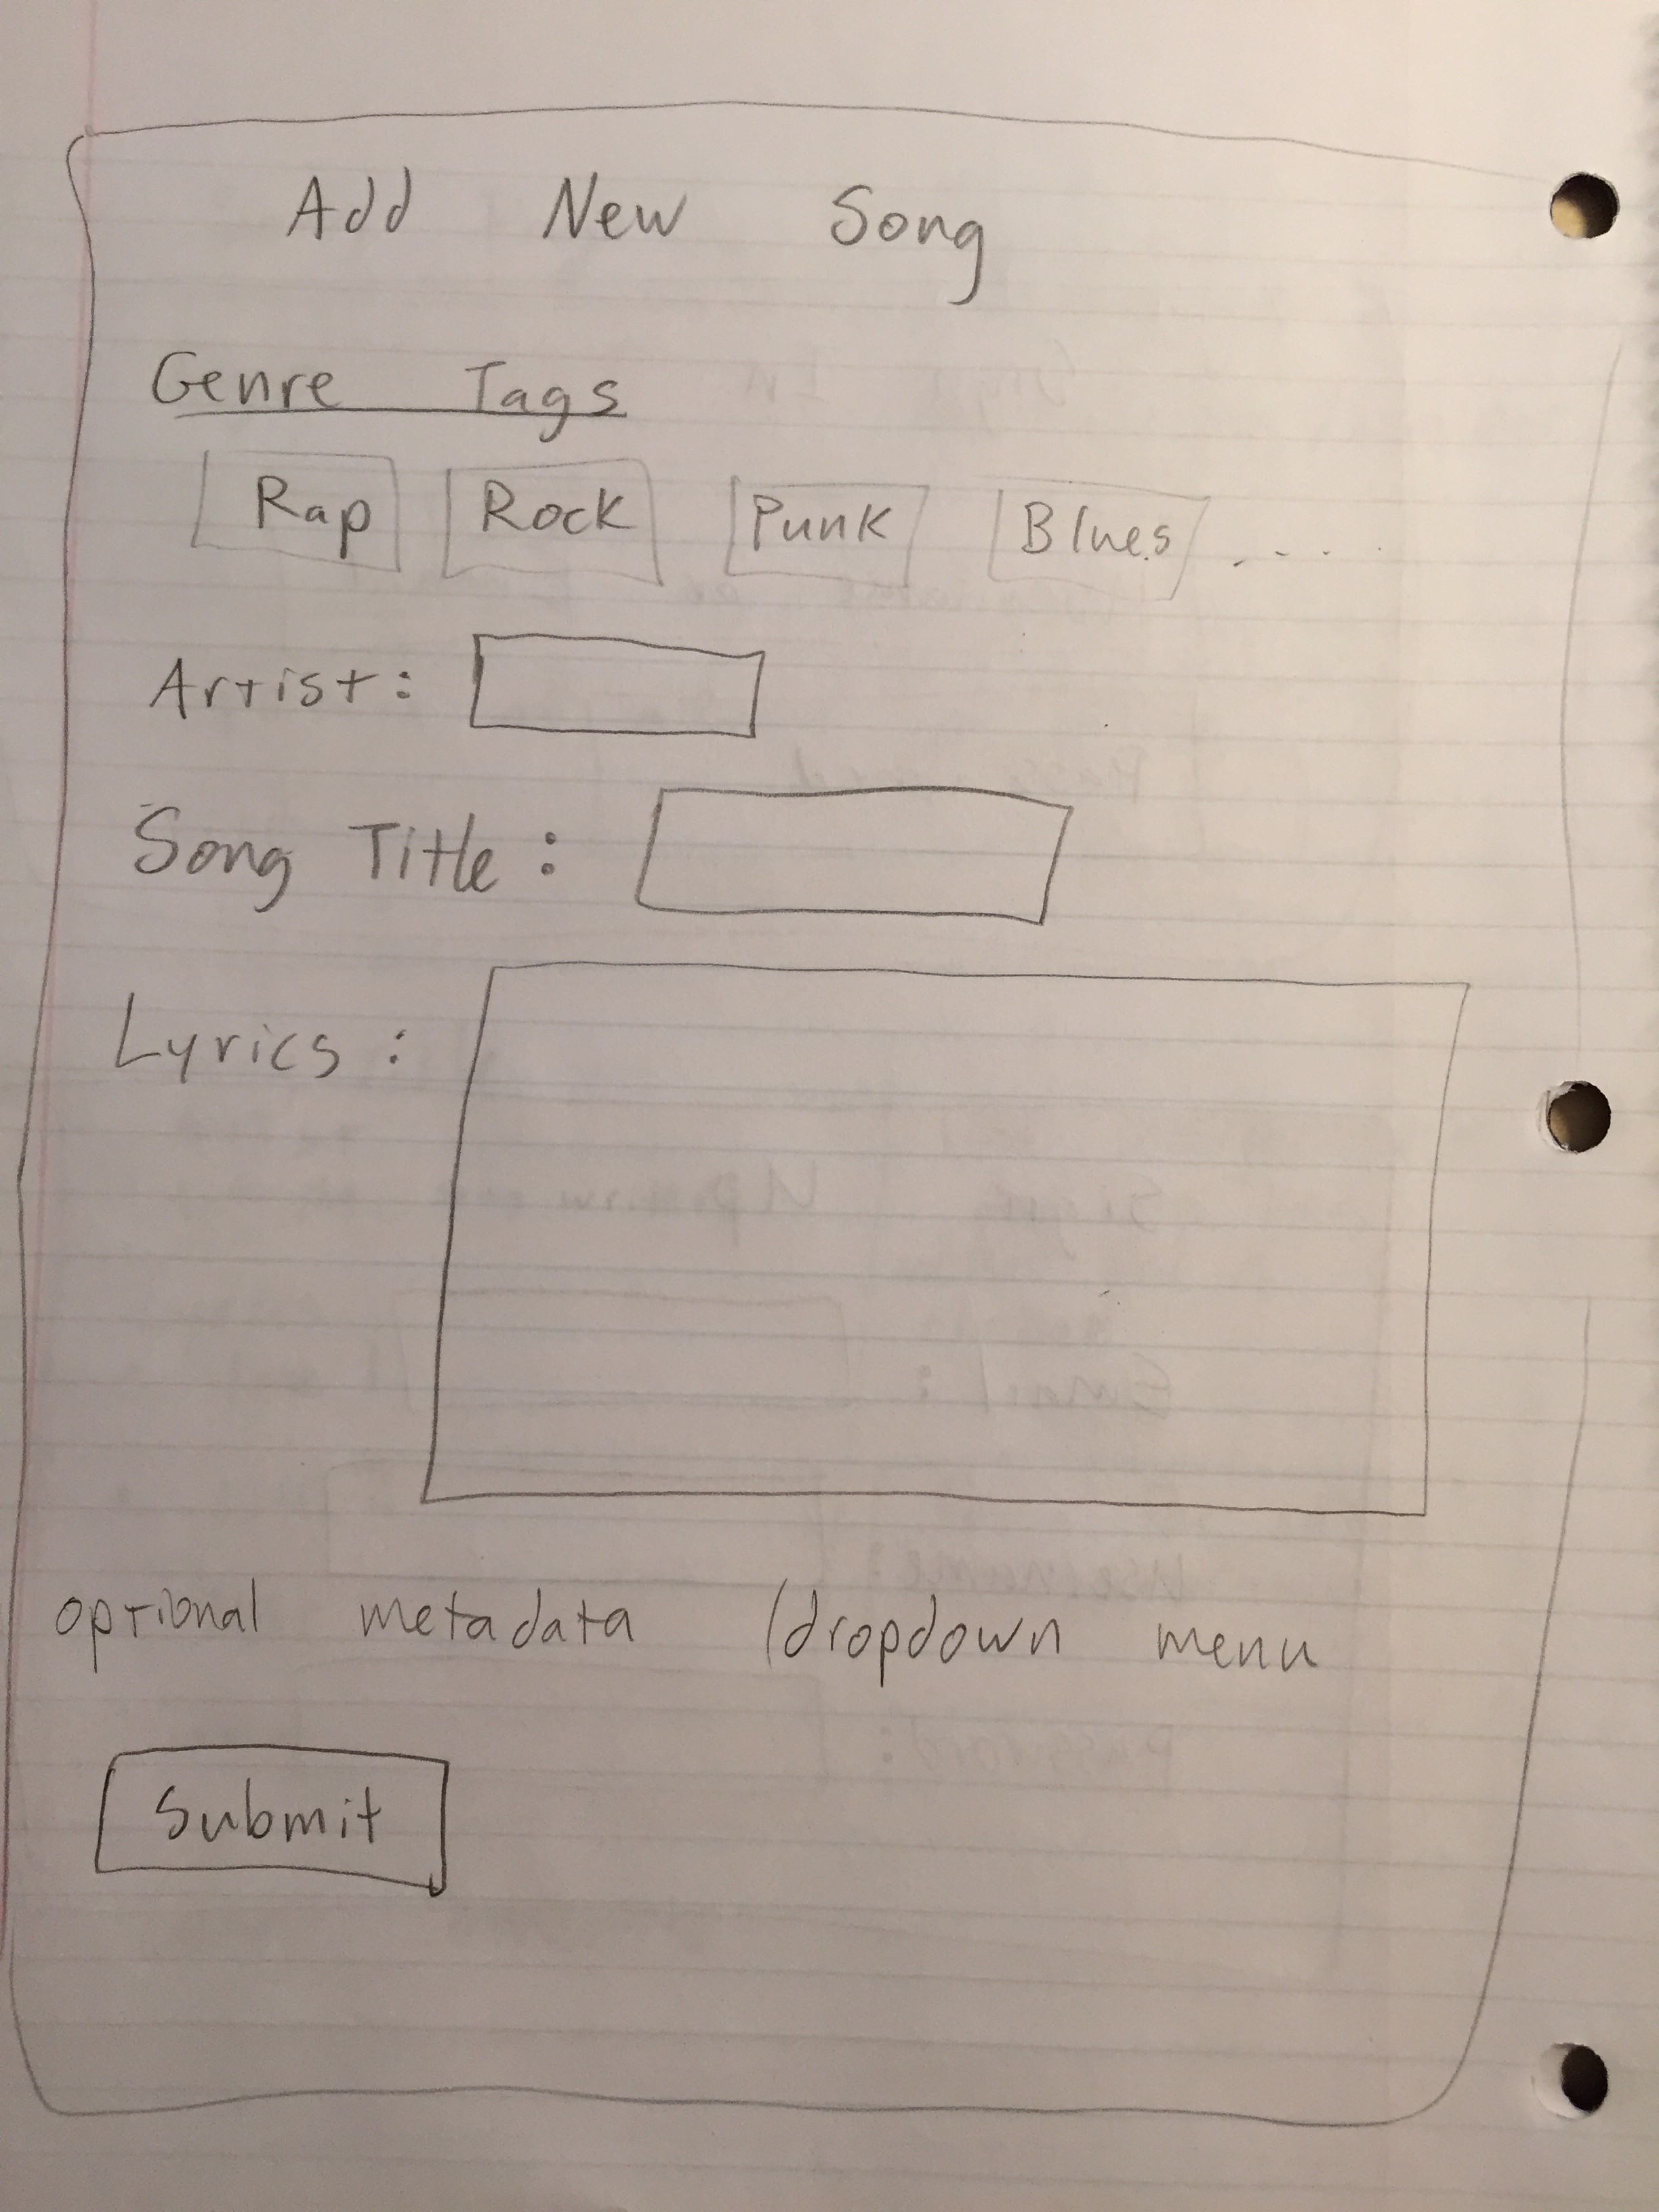 Add New Song
Genre Tags
Rap Rock Punk Blues ....
Artist:
Song Title:
Lyrics:
optional metadata (dropdown menu
Submit